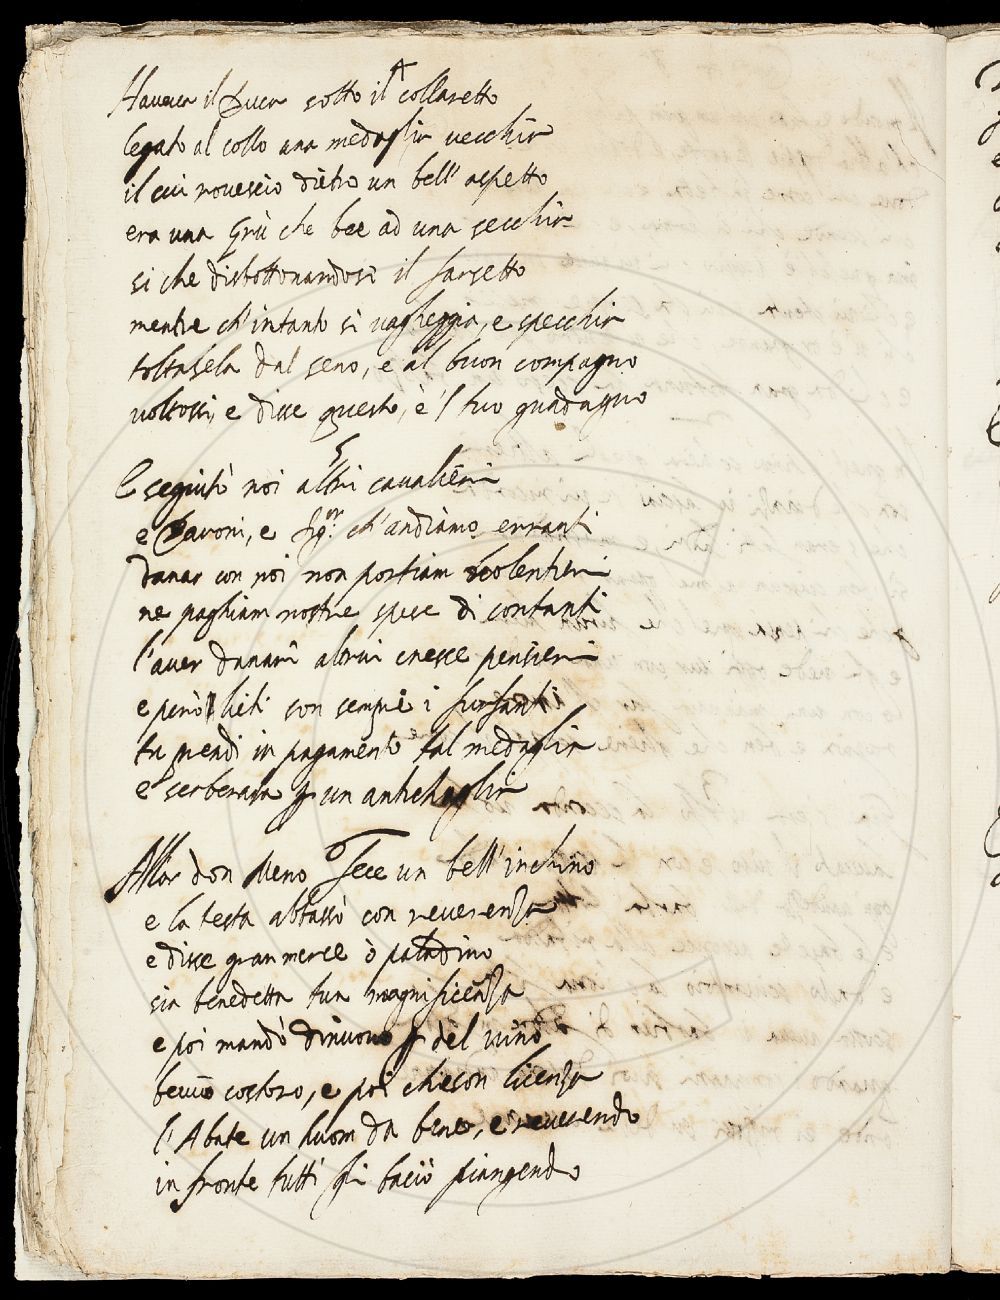 4
Haveva il Duca sotto il collaretto
legato al collo una medaglia vecchia
il cui rovescio dietro un bell' aspetto
era una Grù che bee ad una secchia
si che disbottonandosi il farsetto
mentre ch' intanto si vagheggia, e specchia
toltasela dal seno, e al buon compagno
voltossi, e disse questo, è 'l tuo guadagno
5
E seguitò noi altri cavalieri
e Baroni, e sig.ri ch' andiamo erranti
danar con noi non portiam volentieri
ne paghiam nostre spese di contanti
l'aver danari altrui cresce pensieri
e però lieti son sempre i furfanti
tu prendi in pagamento tal medaglia
e serberala p un anticaglia
6
Allor don Meno fece un bell' inchino
e la testa abbassò con reverenza
e disse gran merce ò paladino
sia benedetta tua magnificenza
e poi mandò dinuovo p del vino
bevvo costoro, e poi chieson licenza
l' Abate un huom da bene, e reverendo
in fronte tutti gli baciò piangendo